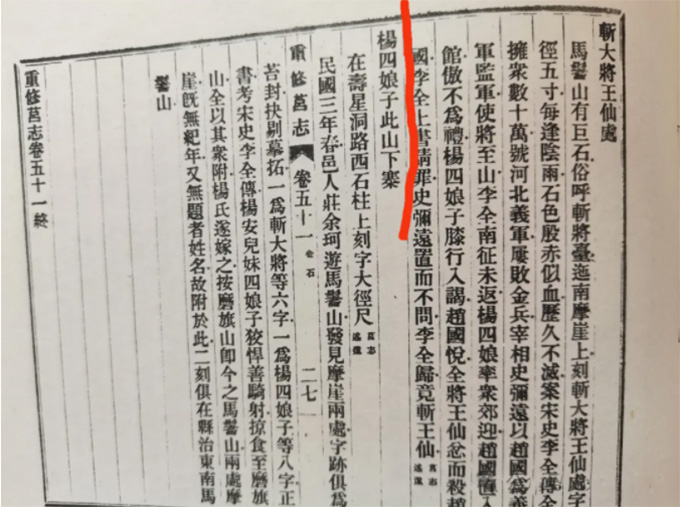 斬大將王仙處
馬鬐山有巨石俗呼斬將臺迤南摩崖上刻斬大將王仙處字
徑五寸每逢陰雨石色殷赤似血歷久不滅案宋史李全傳全
擁衆數十萬號河北義軍屢敗金兵宰相史彌遠以趙國為義
軍監軍使將至山李全南征未返楊四娘率衆郊迎趙國直入
館傲不為禮楊四娘子膝行入謁趙國悅全將王仙忿而殺趙
國李全上書請罪史彌遠置而不問李全歸竟斬王仙 莒志述遺
楊四娘子此山下寨
在壽星洞路西石柱上刻字大徑尺 莒志述遺
民國三年春邑人莊余珂遊馬鬐山發見摩崖兩處字跡俱為
重修莒志 卷五十一 金石 二七
苔封抉剔摹拓一為斬大將等六字一為楊四娘子等八字正
書考宋史李全傳楊安兒妹四娘子狡悍善騎射掠食至磨旗
山全以其衆附楊氏遂嫁之按磨旗山卽今之馬鬐山兩處摩
崖旣無紀年又無題者姓名故附於此二刻俱在縣治東南馬
鬐山
重修莒志卷五十一終